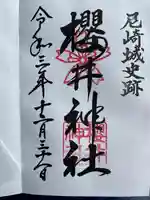 尼崎城史跡
櫻井神社
令和三年十二月三十日